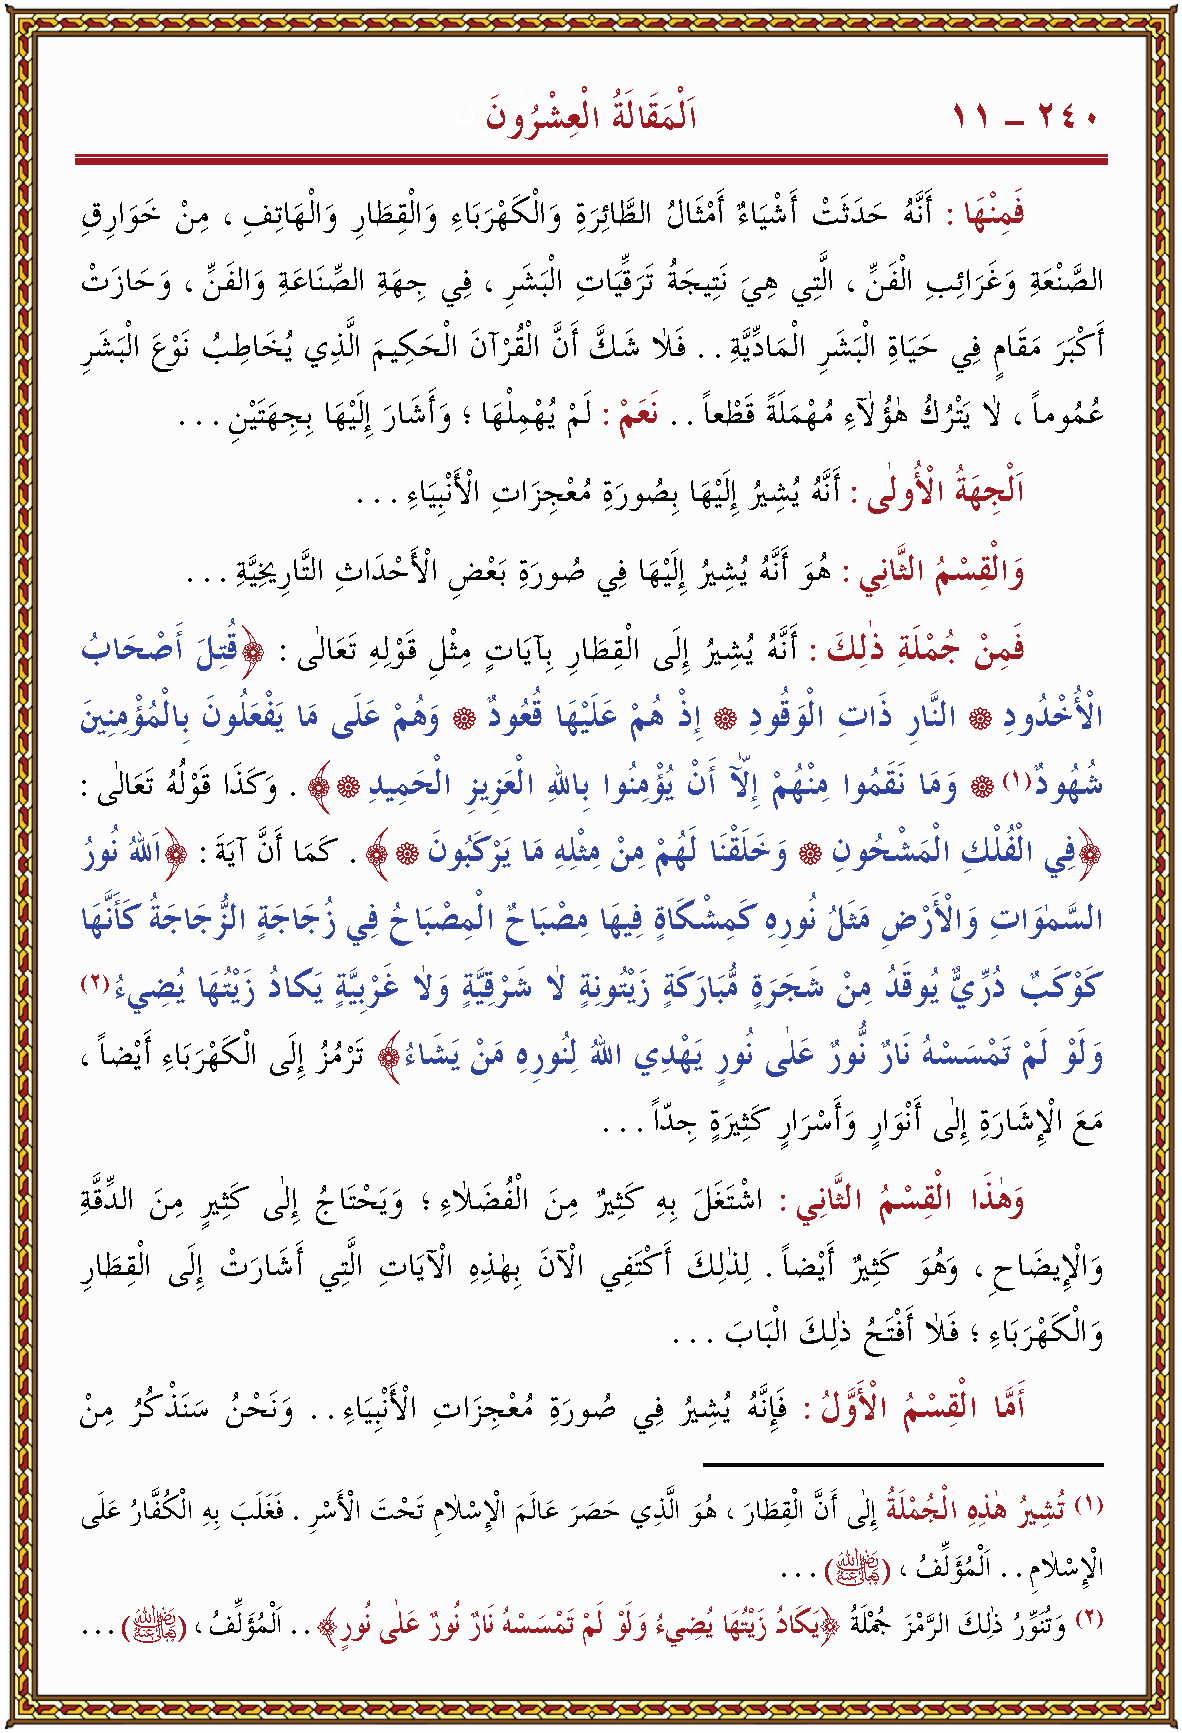 ٢٤٠ – ١١ اَلْمَقَالَةُ الْعِشْرُونَ
فَمِنْهَا : أَنَّهُ حَدَثَتْ أَشْيَاءٌ أَمْثَالُ الطَّائِرَةِ وَالْكَهْرَبَاءِ وَالْقِطَارِ وَالْهَاتِفِ ، مِنْ خَوَارِقِ
الصَّنْعَةِ وَغَرَائِبِ الْفَنِّ ، الَّتِي هِيَ نَتِيجَةُ تَرَقِّيَاتِ الْبَشَرِ ، فِي جِهَةِ الصِّنَاعَةِ وَالْفَنِّ ، وَحَازَتْ
أَكْبَرَ مَقَامٍ فِي حَيَاةِ الْبَشَرِ الْمَادِّيَّةِ . . فَلَا شَكَّ أَنَّ الْقُرْآنَ الْحَكِيمَ الَّذِي يُخَاطِبُ نَوْعَ الْبَشَرِ
عُمُوماً ، لَا يَتْرُكُ هٰؤُلَآءِ مُهْمَلَةً قَطْعاً . . نَعَمْ : لَمْ يُهْمِلْهَا ؛ وَأَشَارَ إِلَيْهَا بِجِهَتَيْنِ . . .
اَلْجِهَةُ الْأُولٰى : أَنَّهُ يُشِيرُ إِلَيْهَا بِصُورَةِ مُعْجِزَاتِ الْأَنْبِيَاءِ . . .
وَالْقِسْمُ الثَّانِي : هُوَ أَنَّهُ يُشِيرُ إِلَيْهَا فِي صُورَةِ بَعْضِ الْأَحْدَاثِ التَّارِيخِيَّةِ . . .
فَمِنْ جُمْلَةِ ذٰلِكَ : أَنَّهُ يُشِيرُ إِلَى الْقِطَارِ بِآيَاتٍ مِثْلِ قَوْلِهِ تَعَالٰى : ﴿قُتِلَ أَصْحَابُ
الْأُخْدُودِ ۞ النَّارِ ذَاتِ الْوَقُودِ ۞ إِذْ هُمْ عَلَيْهَا قُعُودٌ ۞ وَهُمْ عَلَى مَا يَفْعَلُونَ بِالْمُؤْمِنِينَ
شُهُودٌ(١) ۞ وَمَا نَقَمُوا مِنْهُمْ إِلَّآ أَنْ يُؤْمِنُوا بِاللهِ الْعَزِيزِ الْحَمِيدِ ۞﴾ . وَكَذَا قَوْلُهُ تَعَالٰى :
﴿فِي الْفُلْكِ الْمَشْحُونِ ۞ وَخَلَقْنَا لَهُمْ مِنْ مِثْلِهِ مَا يَرْكَبُونَ ۞﴾ . كَمَا أَنَّ آيَةَ : ﴿اَللهُ نُورُ
السَّمٰوَاتِ وَالْأَرْضِ مَثَلُ نُورِهِ كَمِشْكَاةٍ فِيهَا مِصْبَاحٌ الْمِصْبَاحُ فِي زُجَاجَةٍ الزُّجَاجَةُ كَأَنَّهَا
كَوْكَبٌ دُرِّيٌّ يُوقَدُ مِنْ شَجَرَةٍ مُّبَارَكَةٍ زَيْتُونِةٍ لَا شَرْقِيَّةٍ وَلَا غَرْبِيَّةٍ يَكادُ زَيْتُهَا يُضِيءُ(٢)
وَلَوْ لَمْ تَمْسَسْهُ نَارٌ نُّورٌ عَلٰى نُورٍ يَهْدِي اللهُ لِنُورِهِ مَنْ يَشَاءُ﴾ تَرْمُزُ إِلَى الْكَهْرَبَاءِ أَيْضاً ،
مَعَ الْإِشَارَةِ إِلٰى أَنْوَارٍ وَأَسْرَارٍ كَثِيرَةٍ جِدّاً . . .
وَهٰذَا الْقِسْمُ الثَّانِي : اشْتَغَلَ بِهِ كَثِيرٌ مِنَ الْفُضَلَاءِ ؛ وَيَحْتَاجُ إِلٰى كَثِيرٍ مِنَ الدِّقَّةِ
وَالْإِيضَاحِ ، وَهُوَ كَثِيرٌ أَيْضاً . لِذٰلِكَ أَكْتَفِي الْآنَ بِهٰذِهِ الْآيَاتِ الَّتِي أَشَارَتْ إِلَى الْقِطَارِ
وَالْكَهْرَبَاءِ ؛ فَلَا أَفْتَحُ ذٰلِكَ الْبَابَ . . .
أَمَّا الْقِسْمُ الْأَوَّلُ : فَإِنَّهُ يُشِيرُ فِي صُورَةِ مُعْجِزَاتِ الْأَنْبِيَاءِ . . وَنَحْنُ سَنَذْكُرُ مِنْ
(١) تُشِيرُ هٰذِهِ الْجُمْلَةُ إِلٰى أَنَّ الْقِطَارَ ، هُوَ الَّذِي حَصَرَ عَالَمَ الْإِسْلَامِ تَحْتَ الْأَسْرِ . فَغَلَبَ بِهِ الْكُفَّارُ عَلَى
الْإِسْلَامِ . . اَلْمُؤَلِّفُ ، (رضي الله تعالى عنه) . . .
(٢) وَتُنَوِّرُ ذٰلِكَ الرَّمْزَ جُمْلَةُ ﴿يَكَادُ زَيْتُهَا يُضِيءُ وَلَوْ لَمْ تَمْسَسْهُ نَارٌ نُورٌ عَلٰى نُورٍ﴾ . . اَلْمُؤَلِّفُ ، (رضي الله تعالى عنه) . . .